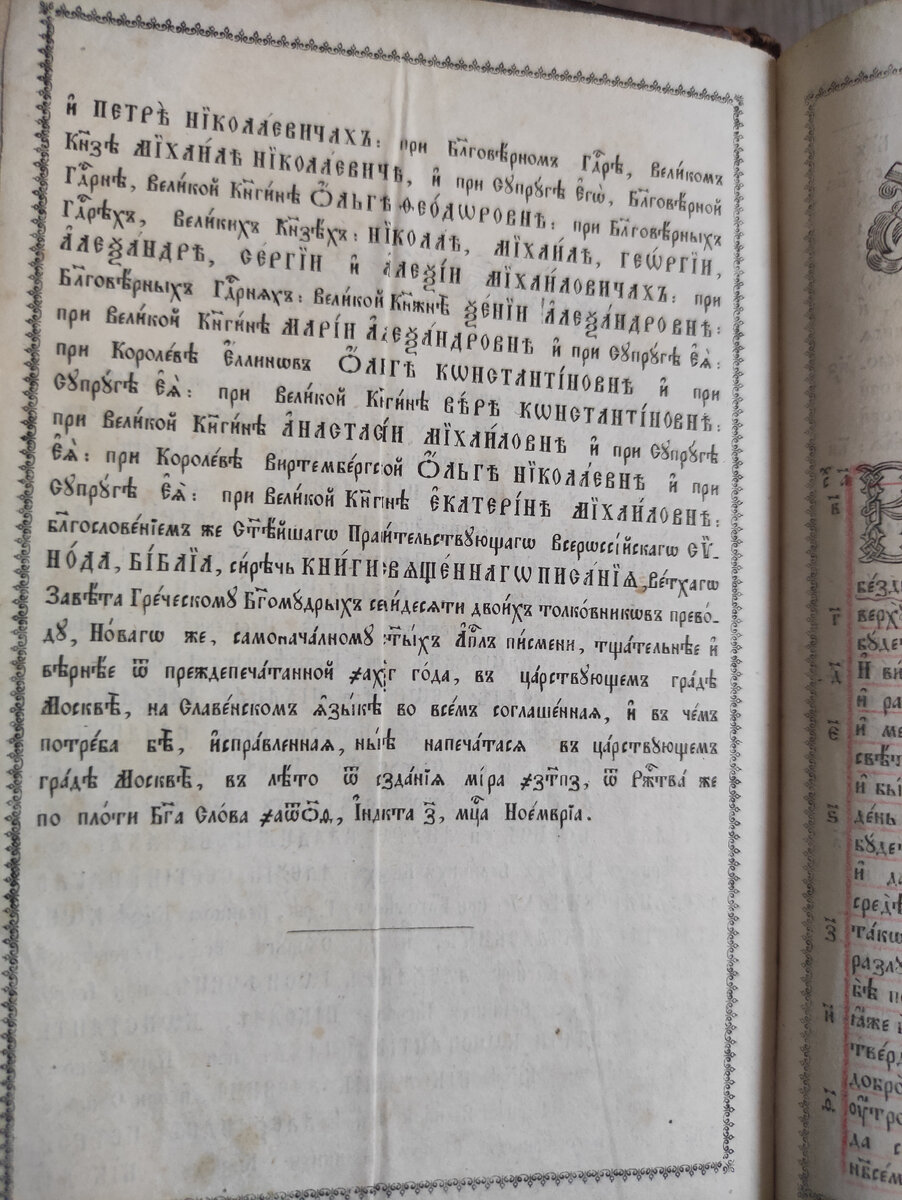 и҆ ПЕТРѢ̀ НЇКОЛА́ЕВИЧАХЪ: при Бл҃гове́рномъ Гдⷭ҇рѣ, Вели́комъ
Кн҃зѣ МЇХАИ́ЛѢ НЇКОЛА́ЕВИЧѢ, и҆ при Сꙋпрꙋ́гѣ Є҆гѡ̀, Бл҃говѣ́рной
Гдⷭ҇рнѣ, Вели́кой Кн҃ги́нѣ Ѻ҆́ЛЬГѢ ѲЕѺ́ДѠРОВНѢ: при Бл҃говѣ́рныхъ
Гдⷭ҇рѣхъ, Вели́кихъ Кн҃зѣхъ: НЇКОЛА́Ѣ, МЇХАИ́ЛѢ, ГЕѠ́РГІИ,
А҆ЛЕѮА́НДРѢ, СЕ́РГІИ и҆ А҆ЛЕѮІ́И МЇХАИ́ЛОВИЧАХЪ: при
Бл҃говѣ́рныхъ Гдⷭ҇рняхъ: Вели́кой Кн҃жнѣ̀ ѮЕ́НІИ А҆ЛЕѮА́НДРОВНѢ:
при Вели́кой Кн҃ги́нѣ МАРІ́И А҆ЛЕѮА́НДРОВНѢ и҆ при Сꙋпрꙋ́гѣ Є҆ѧ̀:
при Короле́вѣ Є҆́ллинѡвъ Ѻ҆́ЛІГѢ КѠНСТАНТІ́НОВНѢ и҆ при
Сꙋпрꙋ́гѣ Є҆ѧ̀: при Вели́кой Кн҃ги́нѣ ВѢ́РѢ КѠНСТАНТІ́НОВНѢ:
при Вели́кой Кн҃ги́нѣ А҆НАСТАСІ́И МЇХАИ́ЛОВНѢ и҆ при Сꙋпрꙋ́гѣ
Є҆ѧ̀: при Короле́вѣ Виртембе́ргской Ѻ҆́ЛЬГѢ НЇКОЛА́ЕВНѢ и҆ при
Сꙋпрꙋ́гѣ Є҆ѧ̀: при Вели́кой Кн҃ги́нѣ Є҆КАТЕРІ́НѢ МЇХАИ́ЛОВНѢ:
бл҃гослове́нїемъ же Ст҃ѣ́йшагѡ Прави́тельствꙋющагѡ Всерѡссі́йскагѡ СѴ-
НО́ДА, БІ́БЛЇА, си́рѣчь КНИ́ГИ СВѦЩЕ́ННАГѠ ПИСА́НЇѦ, Ве́тхагѡ
Завѣ́та Гре́ческомꙋ Бг҃омꙋ́дрыхъ се́дмидесѧти двои́хъ толко́вникѡвъ перево́-
дꙋ, Но́вагѡ же, самонача́лномꙋ ст҃ы́хъ А҆пⷭ҇лъ пи́смени, тща́тельнѣе и҆
вѣ́рнѣе ѿ преждепеча́танной ҂ахѯг го́да, въ ца́рствꙋющемъ гра́дѣ
Москвѣ̀, на Славе́нскомъ ѧ҆зы́кѣ во все́мъ соглаше́нная, и҆ въ че́мъ
потре́ба бѣ̀, и҆спра́вленная, ны́нѣ напеча́тасѧ въ ца́рствꙋющемъ
гра́дѣ Москвѣ̀, въ лѣ́то ѿ созда́нїѧ мі́ра ҂зтп҃з, ѿ Рж҇тва̀ же
по пло́ти Бг҃а Сло́ва ҂аѿѻ҃д, І҆нді́кта з҃, мцⷭ҇а Ное́мврїа.
бе́зд
верхꙋ̀
бꙋде
И҆ ви
и҆ ра
и҆ ме
свѣ́т
и҆ бы
де́нь
бꙋде
и҆ да
средѣ̀
та́кѡ
разлꙋ
бѣ̀ п
ꙗ҆́же
тве́рд
добро
ᲂу҆́тро
да с
нб҃сем